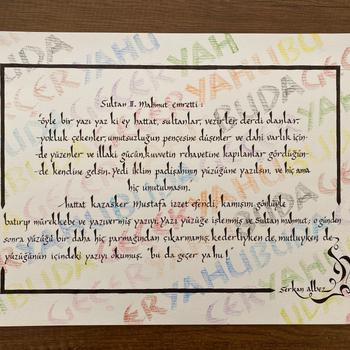 Sultan II. Mahmut emretti :
"öyle bir yazı yaz ki ey hattat, sultanlar, vezirler, derdi olanlar,
yokluk çekenler, umutsuzluğun pençesine düşenler ve dahi varlık için-
de yüzenler ve illaki gücün, kuvvetin rehavetine kapılanlar gördüğün-
de kendine gelsin. Yedi iklim padişahının yüzüğüne yazılsın, ve hiç ama
hiç unutulmasın.
hattat kazasker Mustafa izzet efendi, kamışını gönlüyle
batırıp mürekkebe ve yazıvermiş yazıyı. Yazı yüzüğe işlenmiş ve Sultan mahmut; o günden
sonra yüzüğü bir daha hiç parmağından çıkarmamış. kederliyken de, mutluyken de
yüzüğünün içindeki yazıyı okumuş. "bu da geçer ya hu!"
serkan albez
BU DA GEÇER YAHU